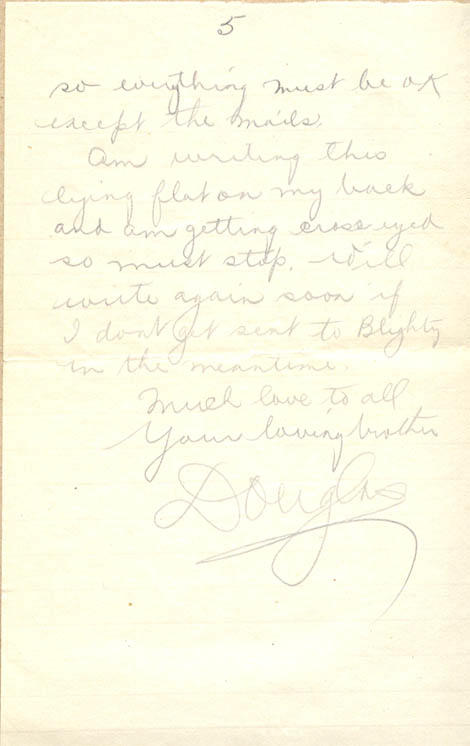 5
so everything must be OK
except the mails.
Am writing this
lying flat on my back
and am getting cross eyed
so must stop. Will
write again soon if
I dont get sent to Blighty
in the meantime.
Much love to all
Your loving brother
Douglas